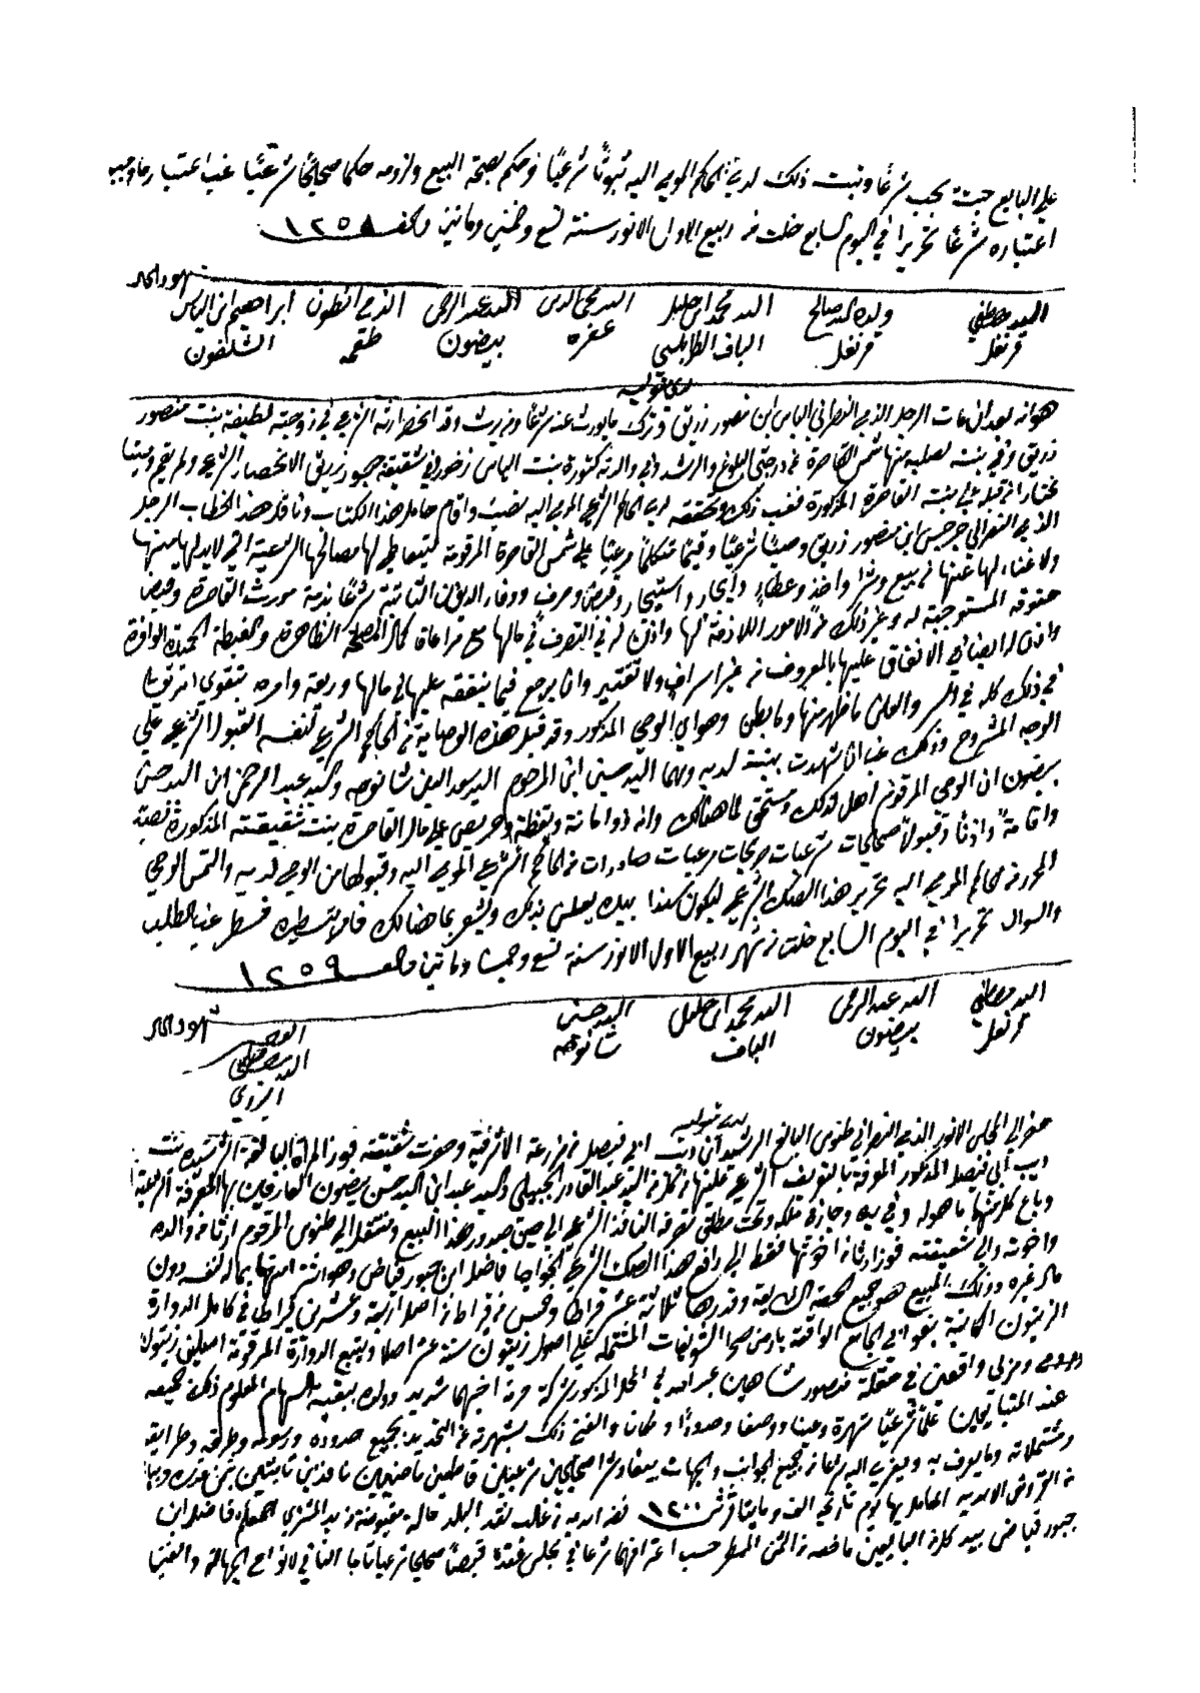 على البايع حيث يجب شرعا وثبت ذلك لدى الحاكم المومى اليه ثبوتا شرعيا وحكم بصحة البيع ولزومه حكما صحيحا شرعيا غب اعتبار ما وجب
اعتباره شرعا تحريرا في اليوم السابع خلت من ربيع الاول الانور سنة تسع وخمسين ومايتين والف ١٢٥٨
شهود الحال
السيد مصطفى قرنفل
ولده السيد صالح قرنفل
السيد محمد ابن خليل الباف الطرابلسي
السيد محي الدين عفره
السيد عبد الرحمن بيضون
الذمي انطون طقمه
ابراهيم ابن الياس الشلفون
هو انه بعد ان مات الرجل الذمي النصراني الياس ابن منصور زريق وترك ما يورث عنه شرعا وقد انحصر ارثه الشرعي في زوجته لطيفة بنت منصور
زريق وفي بنته لصلبه منها شمس القاصرة عن درجتي البلوغ والرشد وفي والدته كتورة بنت الياس وفي شقيقه جبور زريق الانحصار الشرعي ولم يقم وصيا
مختارا من قبله على بنته القاصرة المذكورة فغب ذلك وتحققه لدى الحاكم الشرعي المومى اليه نصب واقام حامل هذا الكتاب وناقل هذا الخطاب الرجل
الذمي النصراني جرجس ابن منصور زريق وصيا شرعيا وقيما متكلما مرعيا على شمس القاصرة المرقومة ليتعاطى لها مصالحها الشرعية التي لا بد لها منها
ولا غناء لها عنها من بيع وشراء واخذ وعطاء وايجار واستيجار وقبض وصرف ووفاء الديون الثابتة شرعا بذمة مورث القاصرة وقبض
حقوقه المستوجبة له وغير ذلك من الامور اللازمة لها واذن له في التصرف في مالها مع مراعاة كمال المصلحة الظاهرة والغبطة الوافرة
واذن له ايضا في الانفاق عليها بالمعروف من غير اسراف ولا تقتير وان يرجع فيما ينفقه عليها في مالها وريعه وامره بتقوى الله تعالى
في ذلك كله في السر والعلن ما ظهر منها وما بطن وهو اي الوصي المذكور قد قبل هذه الوصاية من الحاكم الشرعي لنفسه القبول الشرعي على
الوجه المشروح وذلك غب ان شهدت بينة لديه وهما السيد حسن ابن المرحوم السيد سعد الدين شانوحه والسيد عبد الرحمن ابن السيد حسن
بيضون ان الوصي المرقوم اهل لذلك ومستحق لما هنالك وانه ذو امانة ويقظة وحريص على مال القاصرة بنت شقيقته المذكورة نصبا
واقامة واذنا وقبولا صحيحات شرعيات صريحات مرعيات صادرات من الحاكم الشرعي المومى اليه وقبولها من الوصي لديه والتمس الوصي
المحرر من الحاكم المومى اليه تحرير هذا الصك الشرعي ليكون سندا بيده يعلن بذلك ويشعر بما هنالك فامر بتسطيره فسطر غب الطلب
والسوال تحريرا في اليوم السابع خلت من شهر ربيع الاول الانور سنة تسع وخمسين ومايتين والف ١٢٥٩
شهود الحال
السيد مصطفى قرنفل
السيد عبد الرحمن بيضون
السيد محمد ابن خليل الباف
السيد حسن شانوحه
السيد مصطفى
حضر الى المجلس الانور الذمي النصراني طنوس البالغ الرشيد ابن ديب ابي فيصل من مزرعة الاشرفية وحضرت شقيقته فوز المرأة البالغة الرشيدة بنت
ديب ابي فيصل المذكور المعرفة بالتعريف الشرعي عليها من كل من السيد عبد القادر الجبيلي والسيد عبد ابن السيد حسن بيضون العارفين بها المعرفة الشرعية
وباع كل منهما ما هو له وفي يده وحيازة ملكه وتحت مطلق تصرفه النافذ الشرعي الى حين صدور هذا البيع ومنتقل الى طنوس المرقوم ارثا من والده
واخوته والى شقيقته فوز ارثا من اخوتها فقط الى رافع هذا الصك الشرعي الخواجا فاضل ابن جبور فياض وهو اشترى منهما بماله لنفسه دون
مال غيره وذلك المبيع هو جميع الحصة الشايعة وقدرها ثلاثة عشر قيراطا وخمس من قيراط من اصل اربعة وعشرين قيراطا في كامل الدوارة
الزيتون الكائنة الواقعة بارض صحرا الشويفات المشتملة على اصول زيتون ستة عشر اصلا ويتبع الدوارة المرقومة اصلين زيتون
واقعين في حقلة منصور شاهين في المحل المذكور شركة حرمة اخيهما شديد وولده ببقية السهام المعلوم ذلك جميعه
عند المتبايعين علما شرعيا شهرة وعينا ووصفا وحدودا ومكانا والغني ذلك بشهرته عن التحديد بجميع حدوده ورسومه وطرقه وطرايقه
ومشتملاته وما يعرف به ويعزى اليه من جميع الجوانب والجهات بيعا وشراء صحيحين شرعيين قاطعين ماضيين نافذين ثابتين بثمن قدره وبيانه
من القروش الاسدية المتعامل بها يوم تاريخه الف ومايتا قرش ١٢٠٠ فضة اسدية من اغلب نقد البلد حالة مقبوضة من يد المشتري الخواجا فاضل ابن
جبور فياض بيد كل من البايعين ما خصه من الثمن المسطر حسب اعترافهما شرعا في مجلس عقده قبضا صحيحا شرعيا تاما النافي لانواع الجهالة والغبن